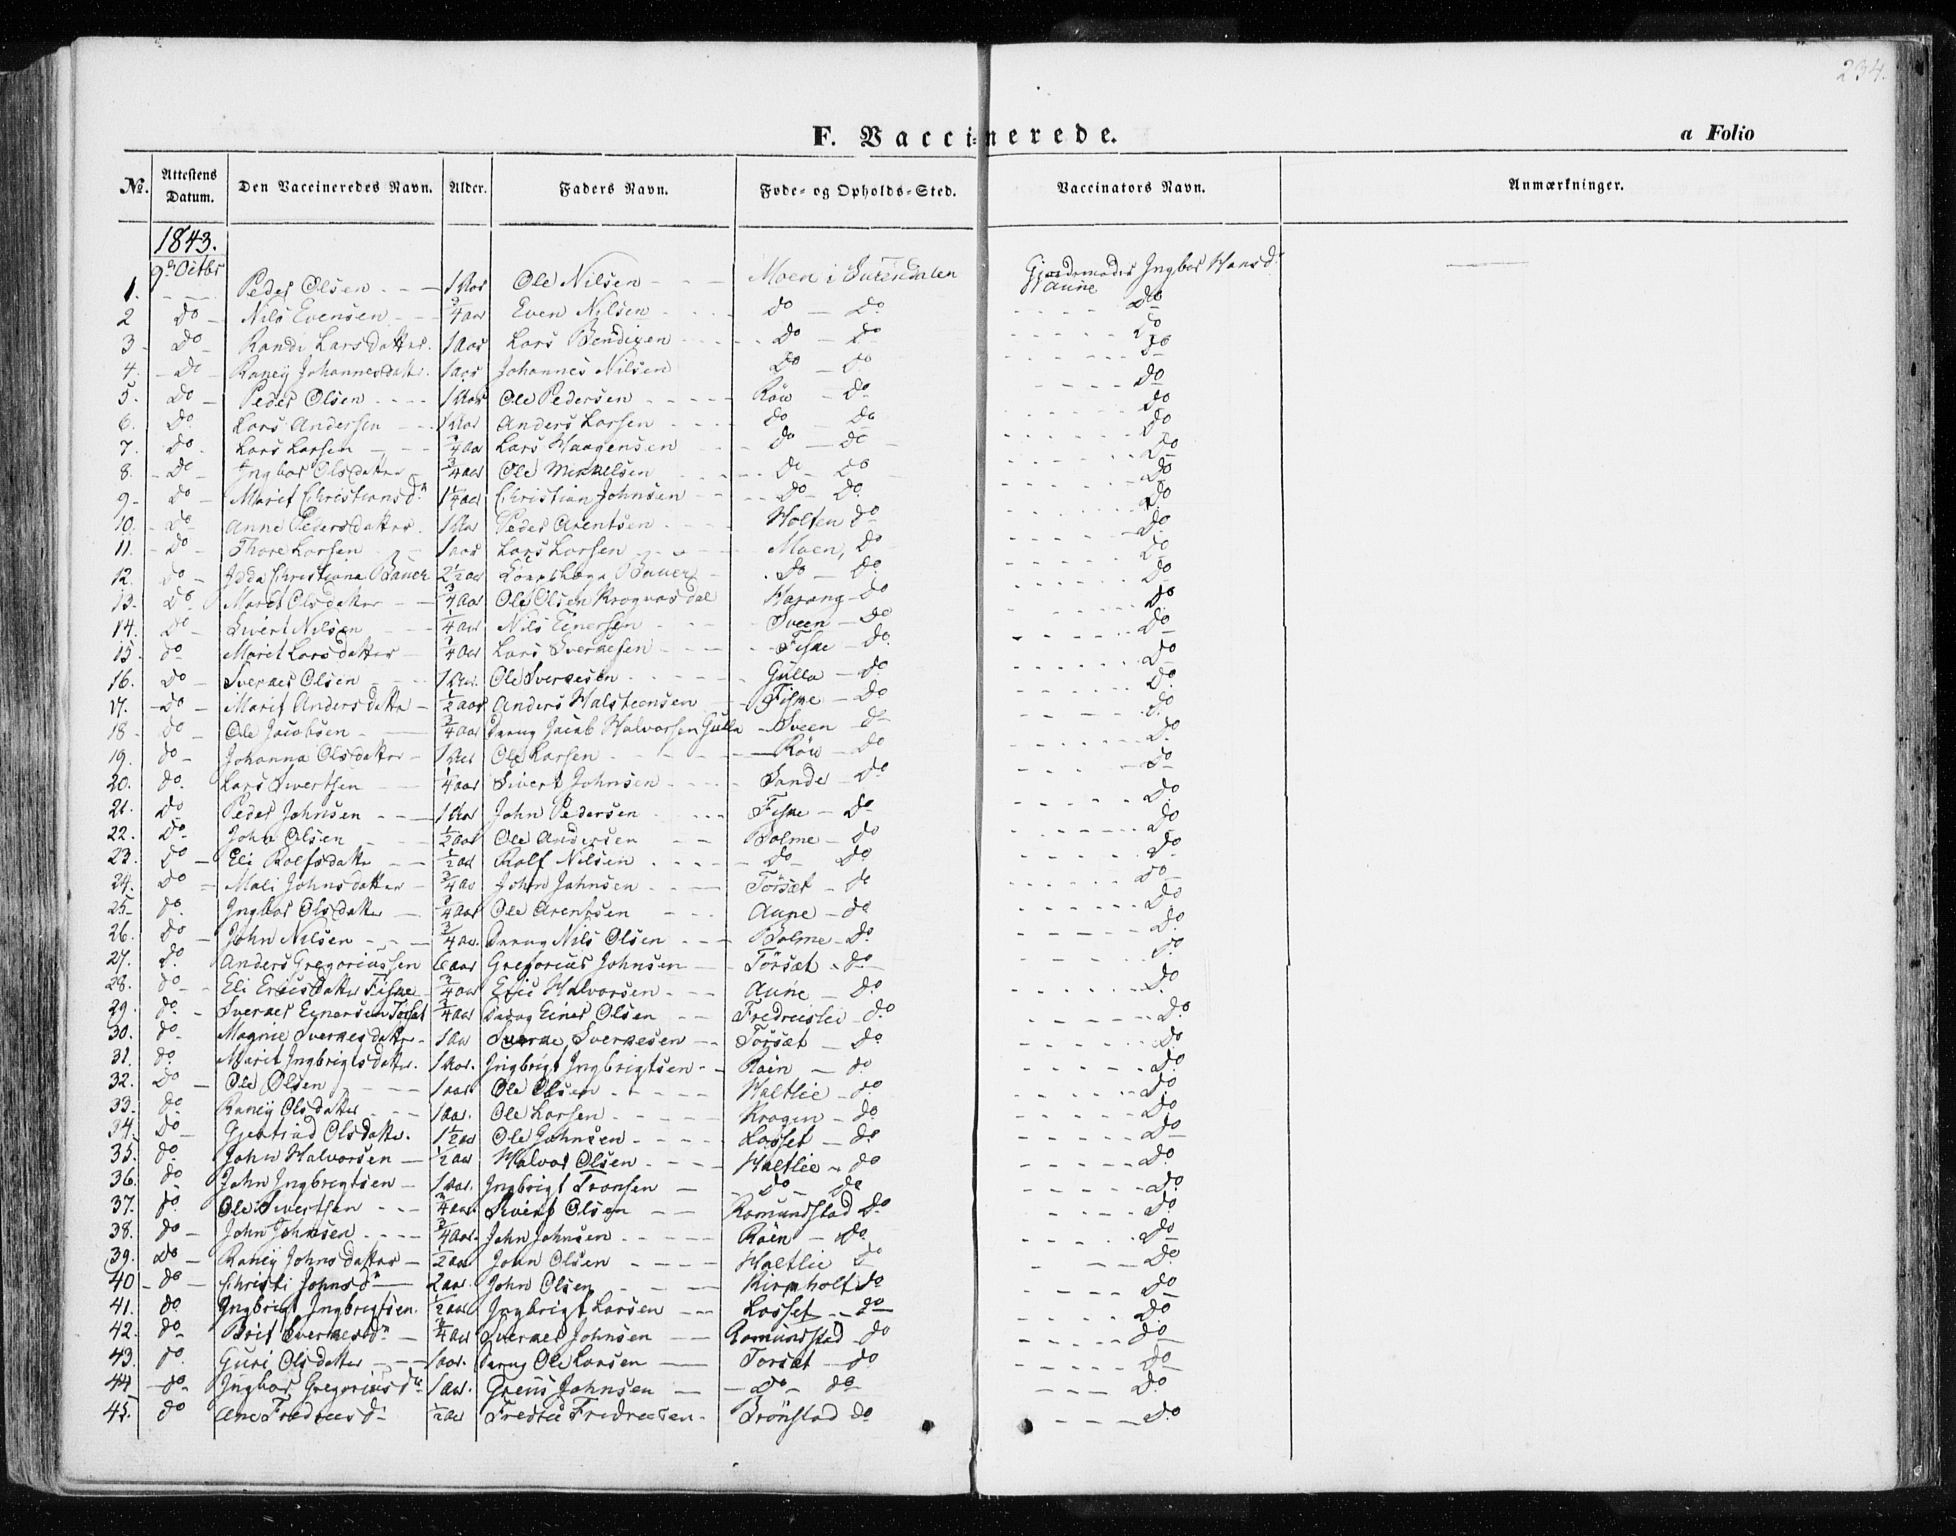 234.
F. Vaccinerede.
a Folio
№. Attestens Datum. Den Vaccineredes Navn. Alder. Faders Navn. Føde- og Opholds-Sted. Vaccinators Navn. Anmærkninger.
1843.
9de Octbr
1. Peder Olsen 1 Aar Ole Nilsen Moen i Surendalen Gjordemoder Ingbor Hansd. Aune
2 Do Nils Evensen 3/4 aar Even Nilsen do Do Do
3 Do Randi Larsdatter 1 Aar Lars Bendixen Do Do Do
4. Do Raney Johannesdatter 1 aar Johannes Nilsen Do Do Do
5. Do Peder Olsen 1 Aar Ole Pedersen Röw Do Do
6. Do Lars Andersen 1 Aar Anders Larsen do do Do
7. Do Lars Larsen 3/4 aar Lars Haagensen do do Do
8. Do Ingbor Olsdatter 3/4 aar Ole Mikkelsen Do Do Do
9 Do Marit Christiansdr 1 1/4 aar Christian Johnsen Do Do Do
10. Do Anne Pedersdatter 1 Aar Peder Arentsen Holten do Do
11. Do Thore Larsen 1 aar Lars Larsen Moen, Do Do
12. Do Christiana Bauer 2 1/2 aar Bauer Do Do Do
13. Do Marit Olsdatter 3/4 aar Ole Olsen Harang Do Do
14. Do Sivert Nilsen 3/4 aar Nils Einersen Sveen Do Do
15 do Marit Larsdatter 3/4 aar Lars Sverkesen Fiske do Do
16. Do Sverkes Olsen 1 Aar Ole Sverkesen Gulla do Do
17. Do Marit Andersdatter 1/2 aar Anders Halsteensen Fiske Do Do
18 do Ole Jacobsen 3/4 aar Jacob Halvorsen Gulla Sveen do Do
19. do Johanna Olsdatter 1 Aar Ole Larsen Röw Do Do
20. do Lars Sivertsen 1/4 aar Sivert Johnsen Sande Do Do
21. do Peder Johnsen 1 Aar John Pedersen Fiske Do Do
22. Do John Olsen 1/2 aar Ole Andersen Bolme do Do
23. Do Eli Rolfsdatter 1/2 aar Rolf Nilsen Do Do Do
24. Do Mali Johnsdatter 3/4 aar John Johnsen Törset do Do
25 do Ingbor Olsdatter 3/4 aar Ole Arentsen Aune do Do
26. do John Nilsen 3/4 aar Nils Olsen Bolme Do Do
27. do Anders Gregoriussen 6 aar Gregorius Johnsen Törsæt do Do
28. do Eli Ericsdatter Fiske 3/4 aar Eric Halvorsen Aune Do Do
29. do Sverkes Einersen Torset 3/4 aar Einer Olsen Fredreislie do Do
30. do Magnie Sverkesdatter 1 aar Sverke Sverkesen Törsæt do Do
31. do Marit Ingbrigtsdatter 1 Aar. Ingbrigt Ingbrigtsen Röen do Do
32. Do Ole Olsen 1 aar Ole Olsen Haltlie do Do
33. do Raney Olsdatter 1 aar. Ole Larsen Krogen do Do
34. Do Gjertrud Olsdatter. 1 1/2 aar Ole Johnsen Losset do Do
35. do John Halvorsen 1/2 aar Halvor Olsen Haltlie do Do
36. do John Ingbrigtsen 1 Aar. Ingbrigt Tronsen Do do Do
37. do Ole Sivertsen 3/4 aar Sivert Olsen Romundstad Do Do
38. do John Johnsen 3/4 aar. John Johnsen Röen Do Do
39. Do Raney Johnsdatter 1/2 aar John Olsen Haltlie Do Do
40 do Christi Johnsdr 2 aar. John Olsen Kirkholt do Do
41. do Ingbrigt Ingbrigtsen 1/2 aar Ingbrigt Larsen Losset do Do
42. do Brit Sverkesdr 3/4 aar Sverkes Johnsen Romundstad do Do
43. do Guri Olsdatter 1 aar. Ole Larsen Torsæt do Do
44 do Ingbor Gregoriusdr 1 aar. Greius Johnsen Do do Do
45. do Ane Fredreesd. 1/2 aar Fredree Fredreesen Brönstad do Do